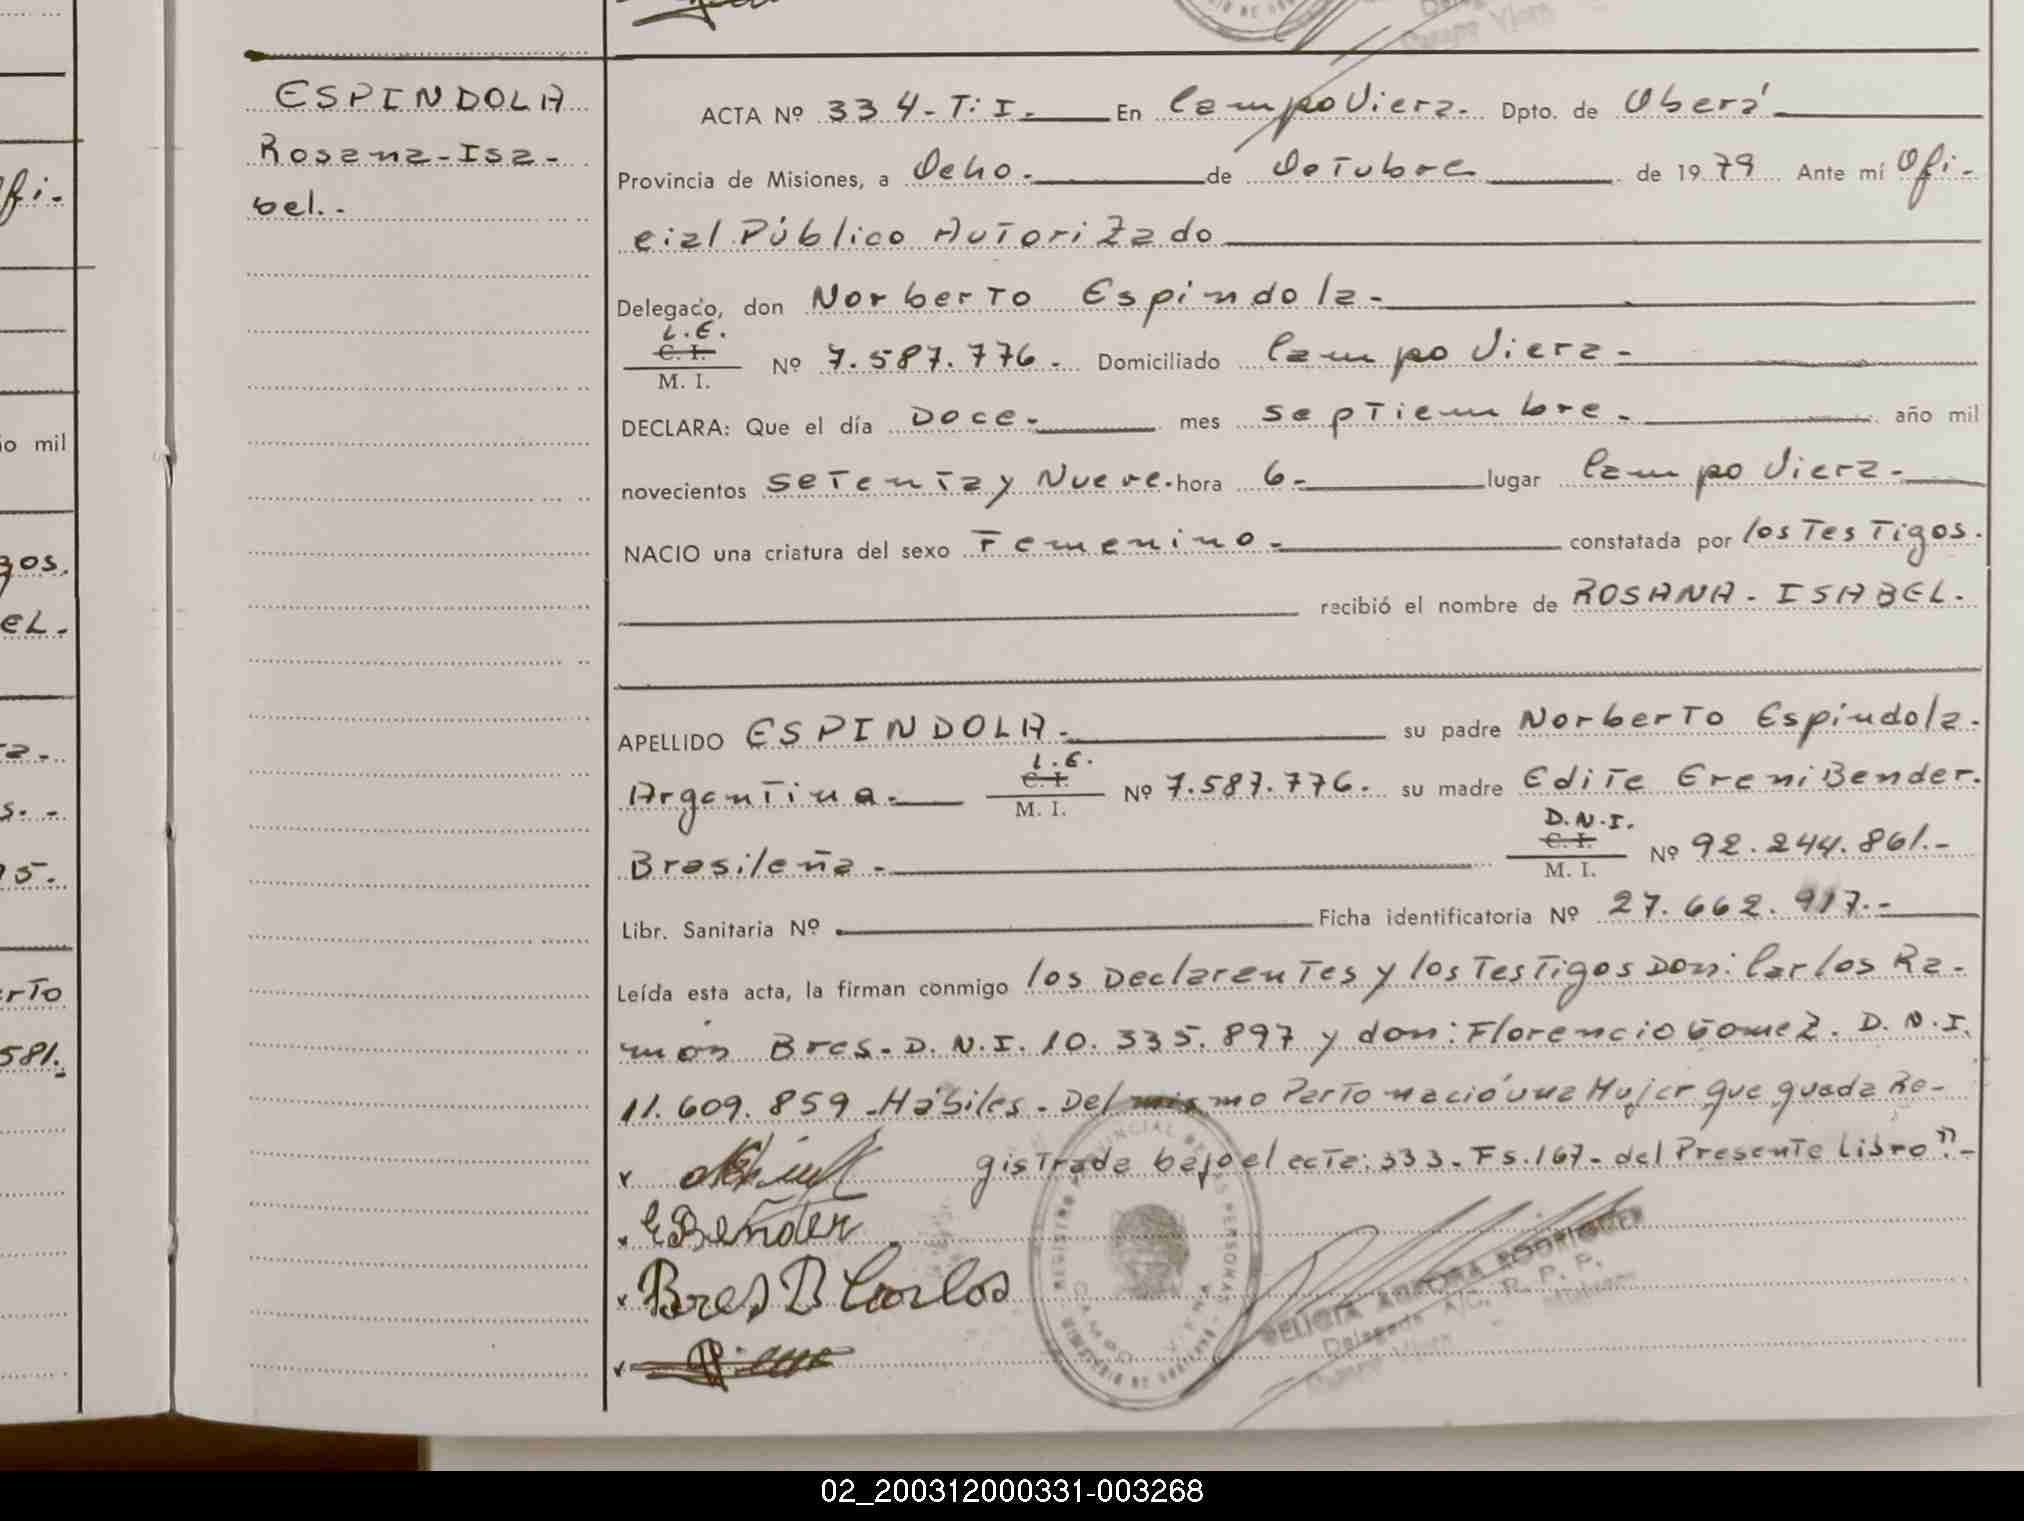 ESPINDOLA
Rosana-Isa-
bel.-
ACTA Nº 334-T:I.- En Campo Viera. Dpto. de Oberá
Provincia de Misiones, a Ocho. de Octubre de 1979 Ante mí Ofi-
cial Público Autorizado
Delegado, don Norberto Espindola.
L.E.
C. I.
M. I.
Nº 7.587.776. Domiciliado Campo Viera-
DECLARA: Que el día Doce. mes septiembre. año mil
novecientos setenta y Nueve. hora 6- lugar Campo Viera.
NACIO una criatura del sexo Femenino. constatada por los Testigos.
recibió el nombre de ROSANA-ISABEL.
APELLIDO ESPINDOLA. su padre Norberto Espindola.
L.E.
Argentina. C. I. Nº 7.587.776. su madre Edite Ereni Bender.
M. I.
D.N.I.
Brasileña- C. I. Nº 92.244.861.-
M. I.
Libr. Sanitaria Nº Ficha identificatoria Nº 27.662.917.-
Leída esta acta, la firman conmigo los Declarantes y los Testigos Don: Carlos Ra-
món Bres. D.N.I. 10.335.897 y don: Florencio Gomez. D.N.I.
11.609.859-Hábiles. Del mismo Parto nació una Mujer que queda Re-
gistrada bajo el acta: 333-Fs.167-del Presente Libro"-
E Bender
Bres R Carlos
REGISTRO PROVINCIAL DE LAS PERSONAS
CAMPO VIERA
MINISTERIO DE GOBIERNO
AURORA RODRIGUEZ
Delegada A/C. R. P. P.
Campo Viera - Misiones
ofi-
io mil
gos.
EL.
ra-.
s.-
95.
erto
581.
02_200312000331-003268